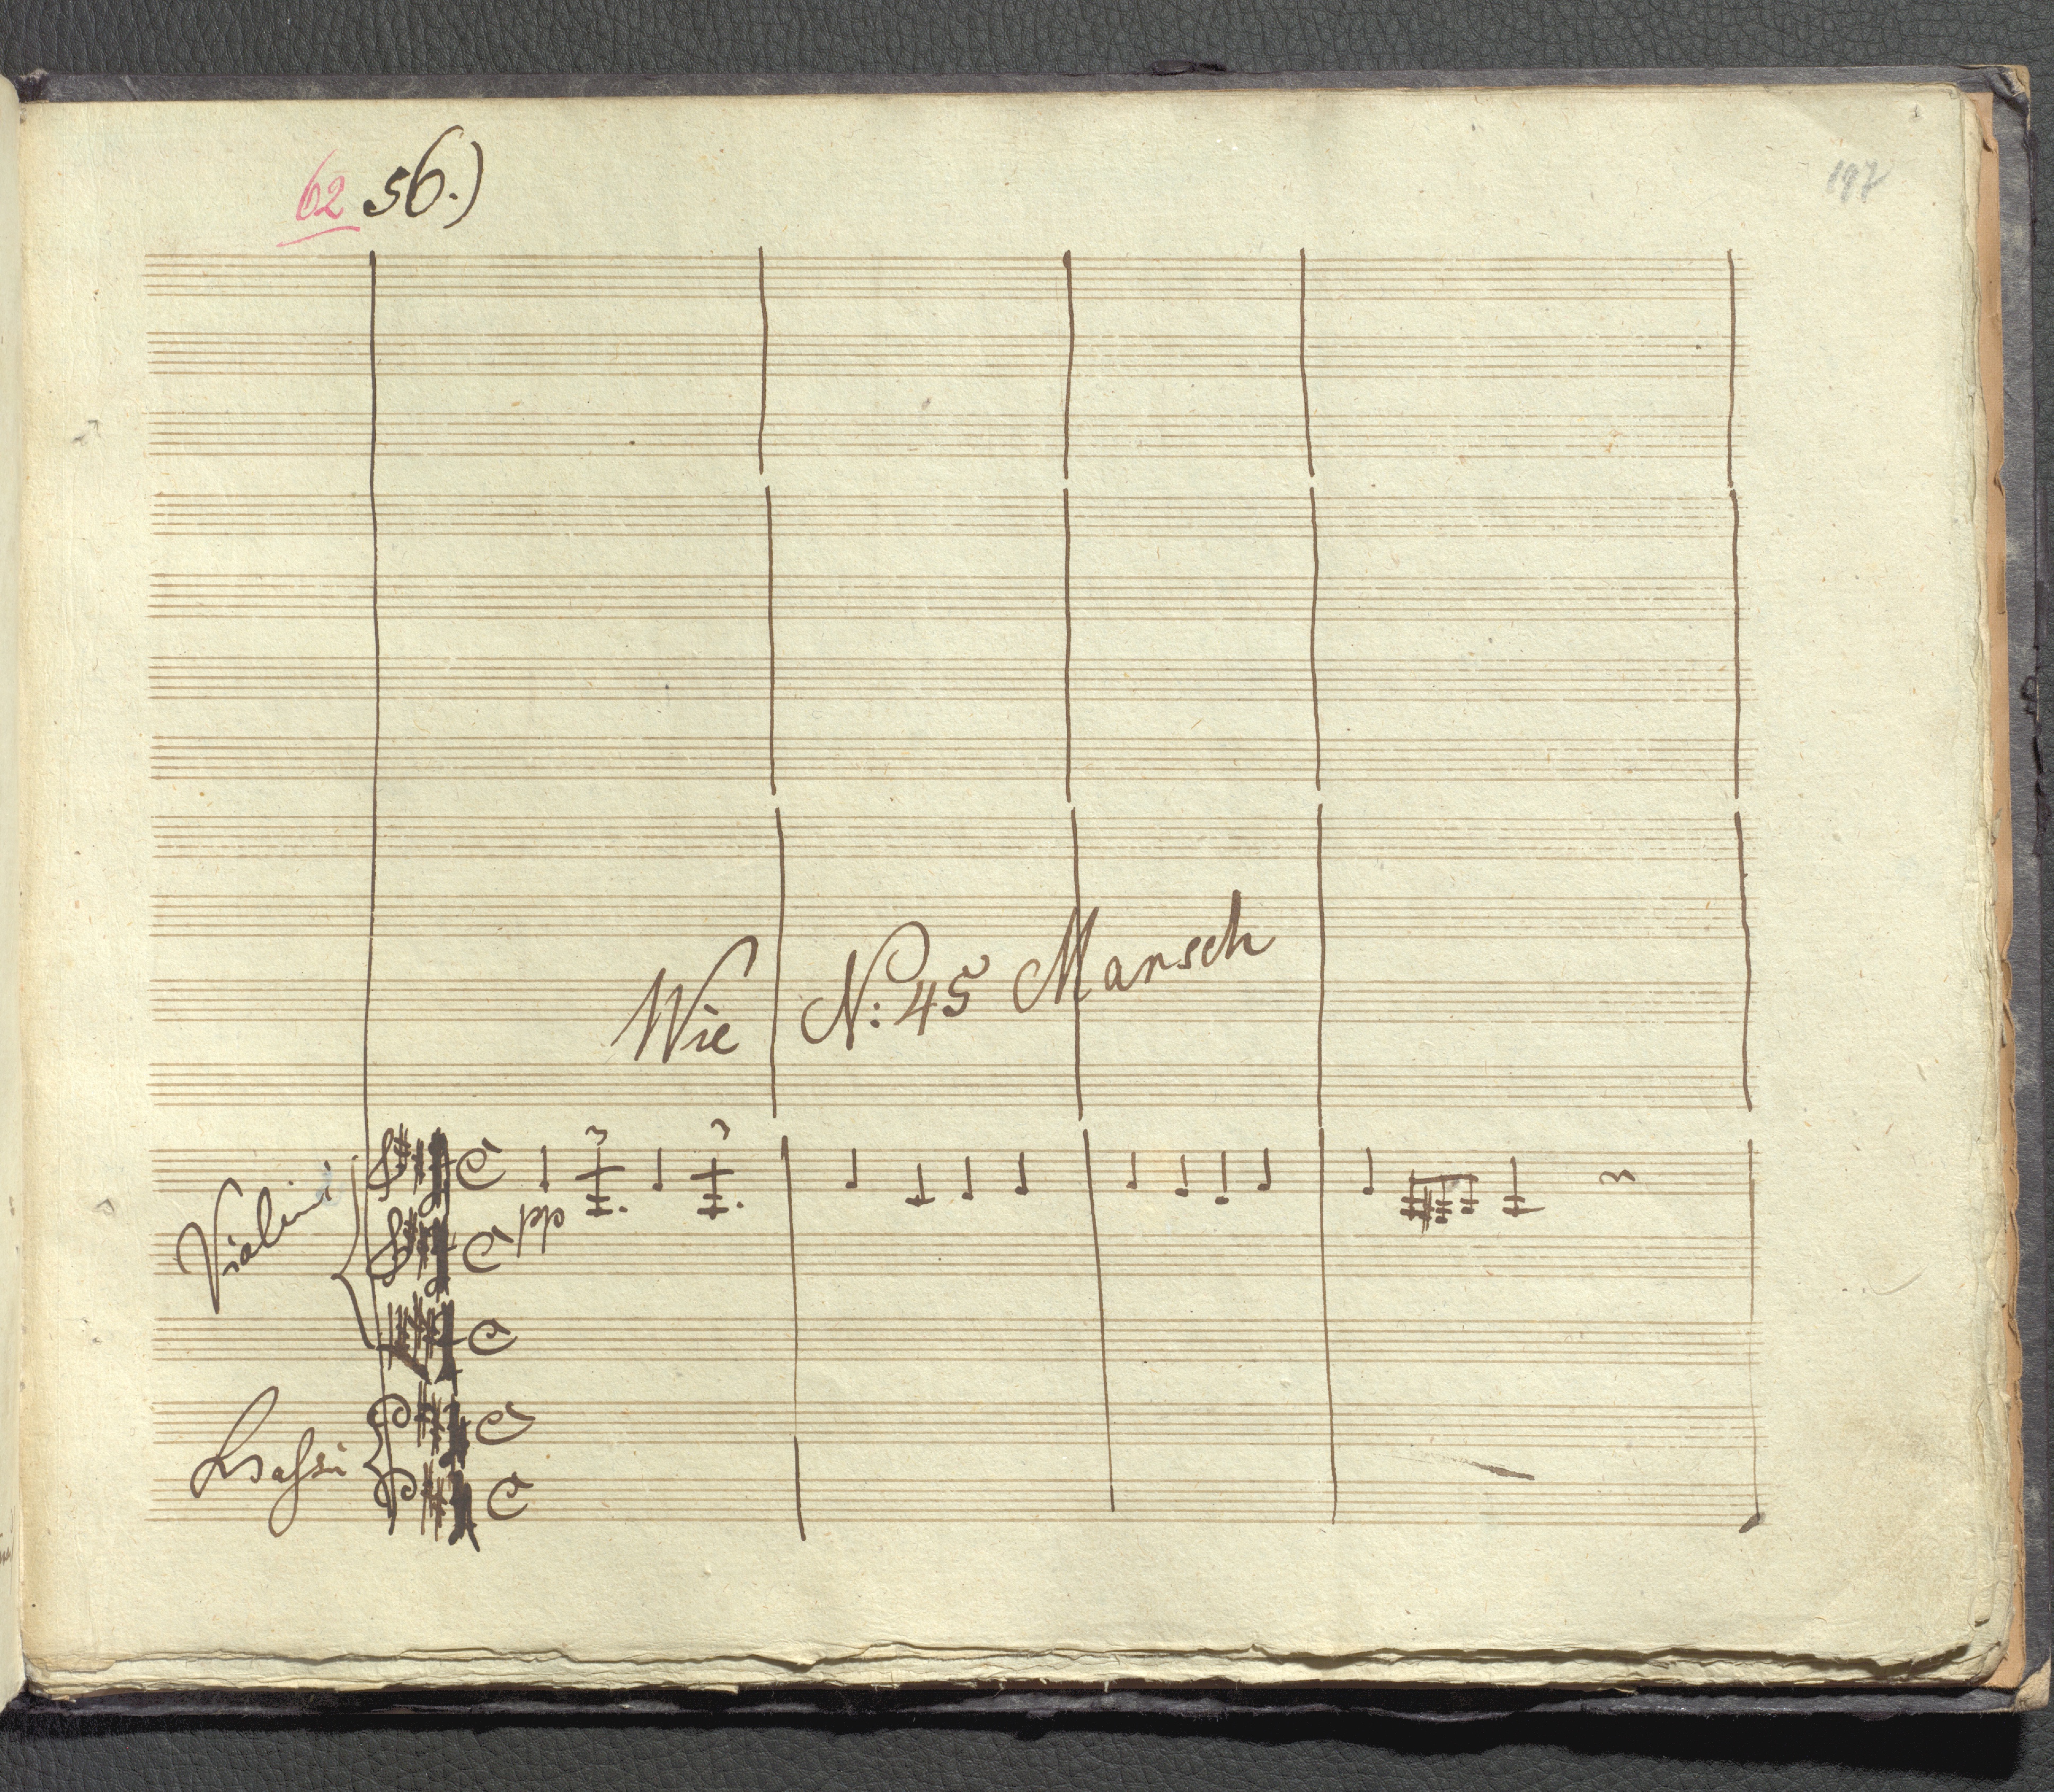 62 56.)
197
Wie N: 45 Marsch
Violini
pp
Bassi